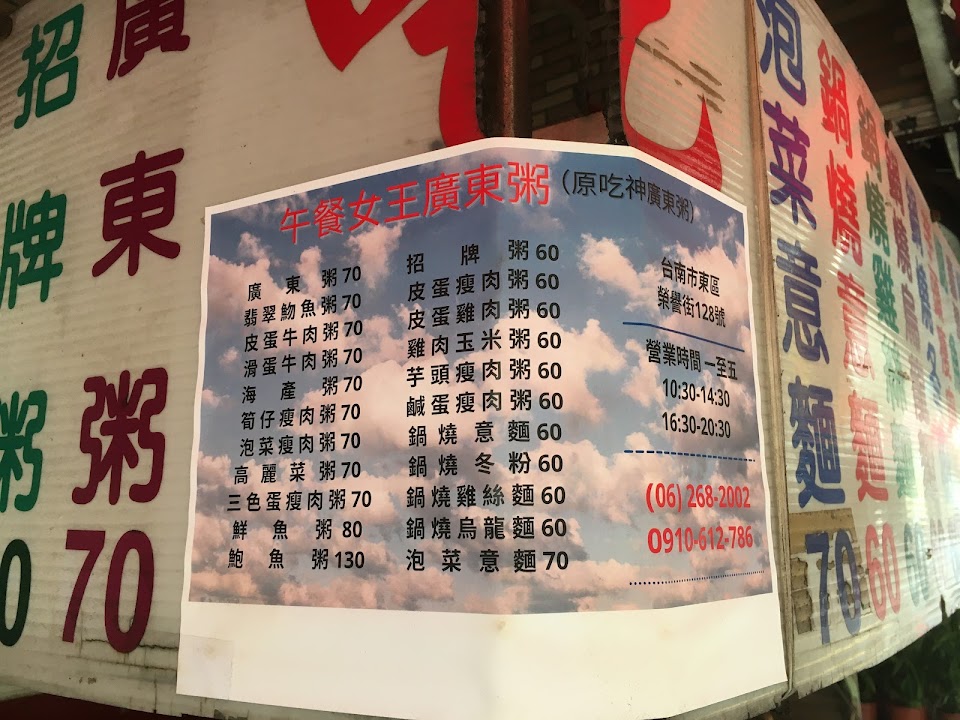 招牌粥
廣東粥70
午餐女王廣東粥(原吃神廣東粥)
廣東粥70
翡翠魩魚粥70
皮蛋牛肉粥70
滑蛋牛肉粥70
海產粥70
筍仔瘦肉粥70
泡菜瘦肉粥70
高麗菜粥70
三色蛋瘦肉粥70
鮮魚粥80
鮑魚粥130
招牌粥60
皮蛋瘦肉粥60
皮蛋雞肉粥60
雞肉玉米粥60
芋頭瘦肉粥60
鹹蛋瘦肉粥60
鍋燒意麵60
鍋燒冬粉60
鍋燒雞絲麵60
鍋燒烏龍麵60
泡菜意麵70
台南市東區
榮譽街128號
營業時間一至五
10:30-14:30
16:30-20:30
(06)268-2002
0910-612-786
泡菜意麵70
鍋燒意麵60